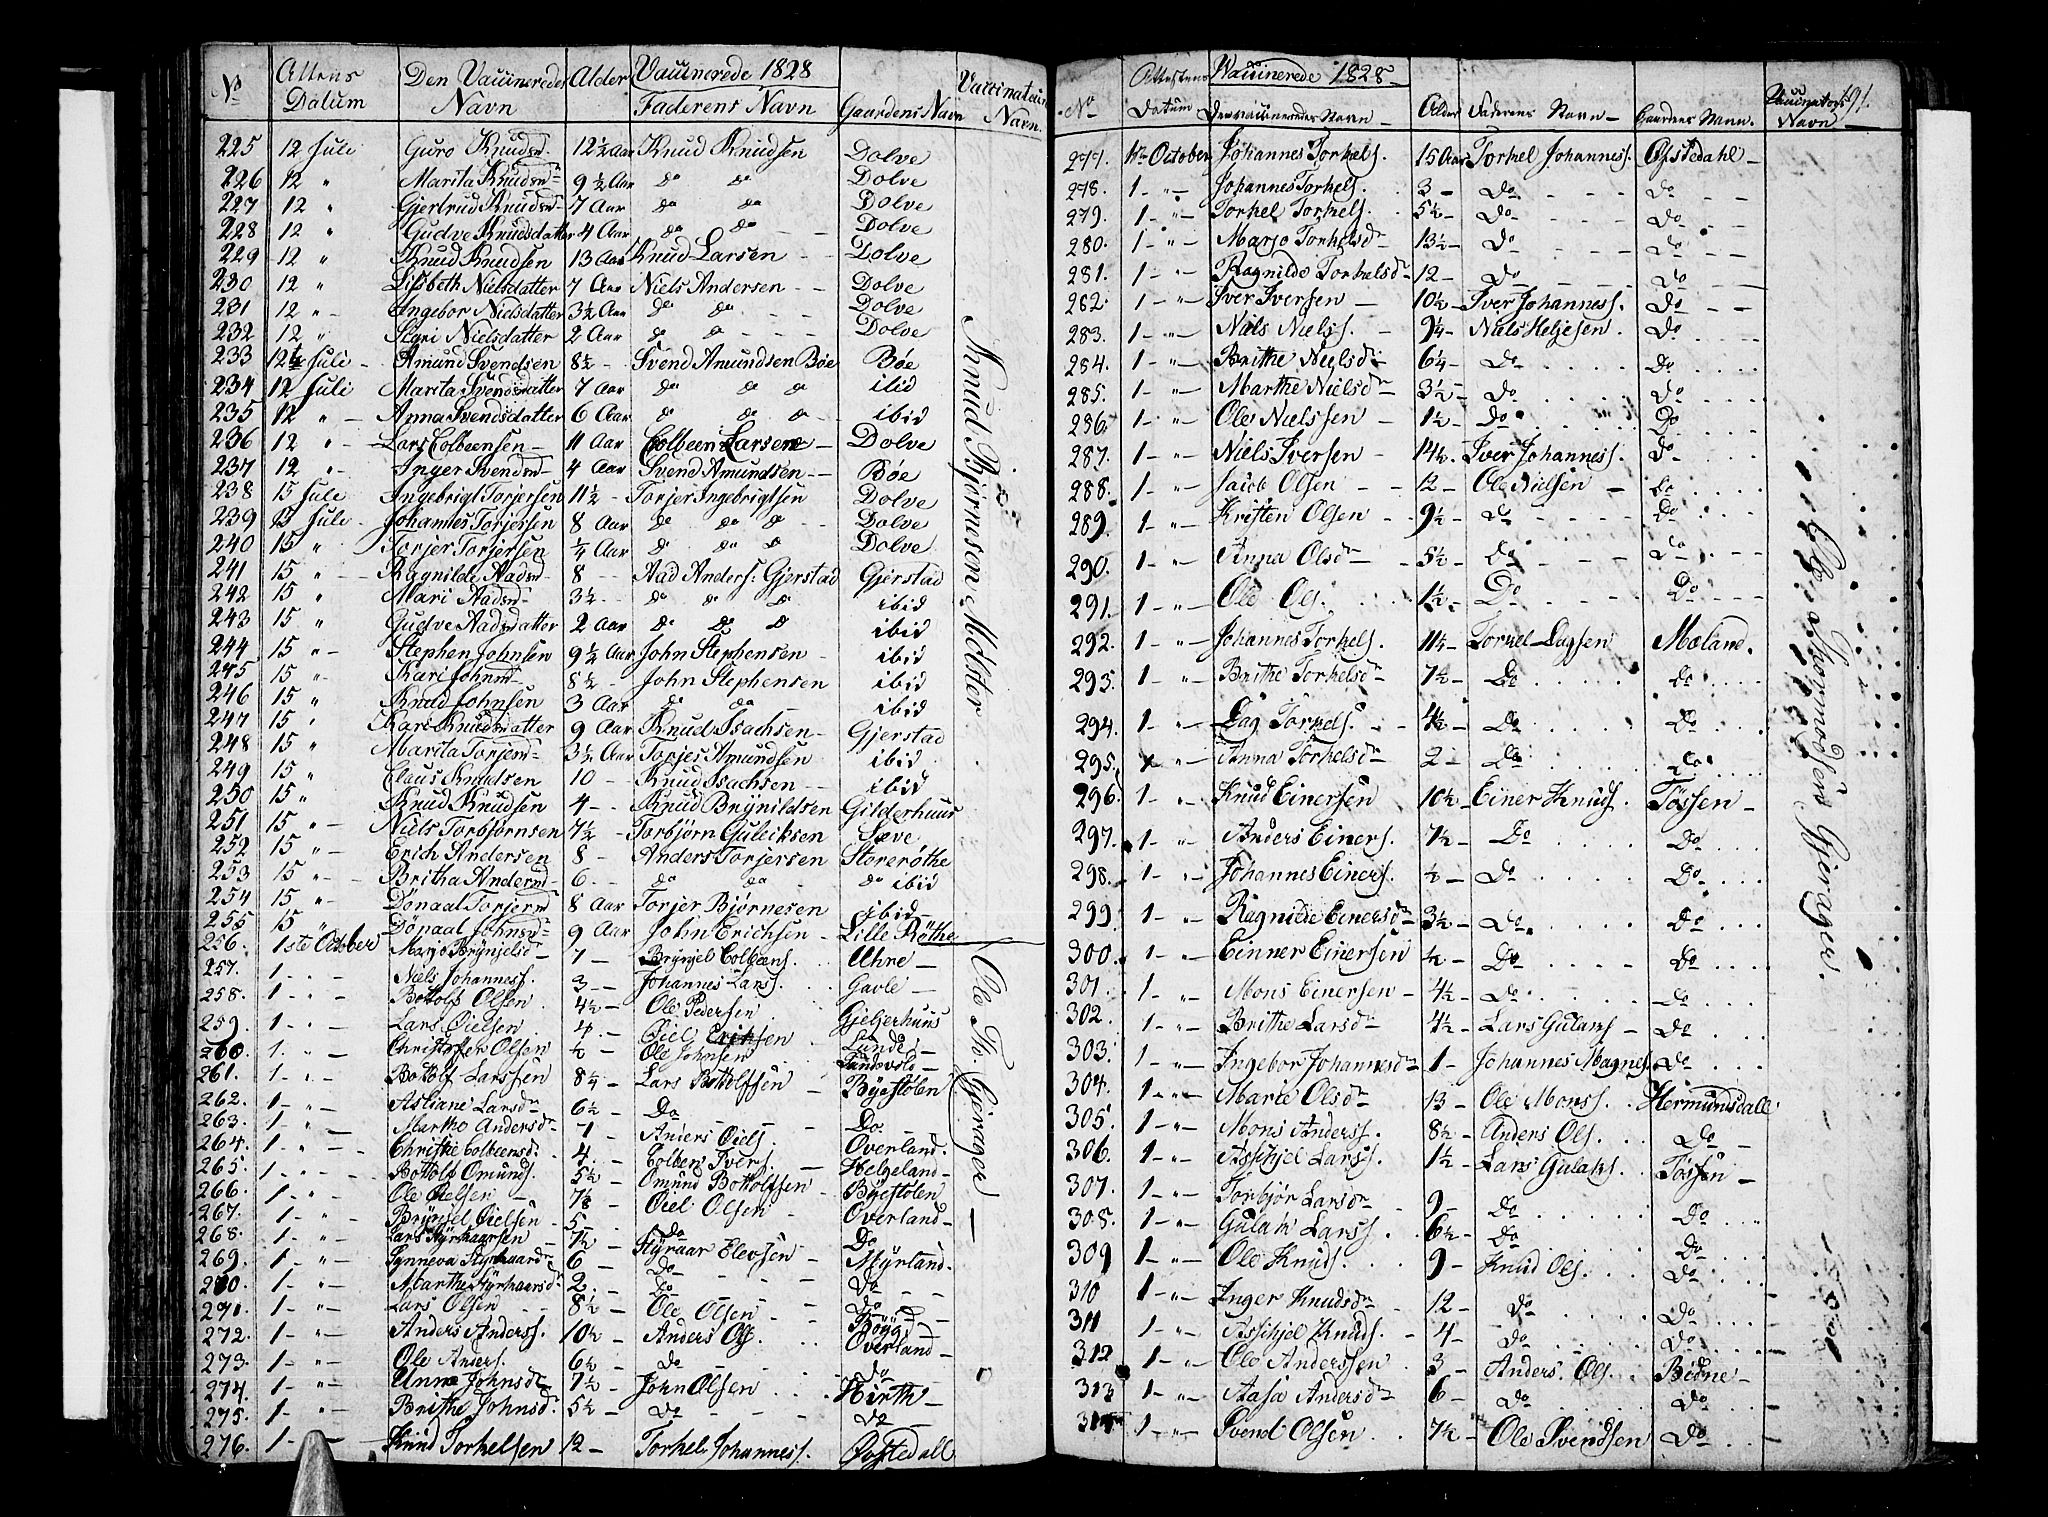 No | Attens Datum | Den Vaccineredes Navn | Alder | Vaccinerede 1828 Faderens Navn | Gaardens Navn | Vaccinateurs Navn
225 12 Juli Guro Knudsd. 12½ Aar Knud Knudsen Dolve
226 12 " Marita Knudsd. 9½ Aar do do Dolve
227 12 " Gjertrud Knudsd. 7 Aar do do Dolve
228 12 " Gudve Knudsdatter 4 Aar do do Dolve
229 12 " Knud Knudsen 13 Aar Knud Larsen Dolve
230 12 " Lisbeth Nielsdatter 7 Aar Niels Andersen Dolve
231 12 " Ingebor Nielsdatter 3½ Aar do do Dolve
232 12 " Siari Nielsdatter 2 Aar do do Dolve
233 12 Juli Amund Svendsen 8½ Svend Amundsen Bøe Bøe
234 12 Juli Marita Svendsdatter 7 Aar do do do ibid
235 12 " Anna Svendsdatter 6 Aar do do do ibid
236 12 " Lars Colbeensen 11 Aar Colbeen Larsen Dolve
237 12 " Inger Svendsd. 4 Aar Svend Amundsen Bøe
238 15 Jule Ingebrigt Torjersen 11½ Torjer Ingebrigtsen Dolve
239 15 Jule Johannes Torjersen 8 Aar do do do Dolve
240 15 " Torjer Torjersen ¼ Aar do do do Dolve
241 15 " Ragnilde Aadsd. 8 Aad Anders: Gjerstad Gjerstad
242 15 " Mari Aadsd. 3½ do do do ibid
243 15 " Gudve Aadsdatter 2 Aar do do do ibid
244 15 " Stephen Johnsen 9½ Aar John Stephensen ibid
245 15 " Kari Johnsd. 8½ John Stephensen ibid
246 15 " Knud Johnsen 3 Aar do do ibid
247 15 " Kari Knudsdatter 9 Aar Knud Isachsen Gjerstad
248 15 " Marita Torjesd. 3½ Aar Torjes Amundsen ibid
249 15 " Claus Knudsen 10 Knud Isachsen ibid
250 15 " Knud Knudsen 4 Knud Brynildsen Gilderhuus
251 15 " Niels Torbjørnsen 7½ Torbjørn Guleiksen Sæve
252 15 " Erich Andersen 8 Anders Torjersen Storerøthe
253 15 " Britha Andersd. 6 do do do ibid
254 15 " Dönaal Torjersd. 8 Aar Torjer Bjørnesen ibid
255 15 " Dönaal Johnsd. 9 Aar John Erichsen Lille Røthe
Knud Bjørnesen Molster
256. 1ste October Marjo Brynjelsd. 7 Brynjel Colbeens. Uhre
257. 1 " Niels Johanness. 3 Johannes Larss. Gavle
258. 1 " Bottolf Olsen 4½ Ole Pedersen Gjeljerhuus
259. 1 " Lars Oielsen 4 Oiel Eriksen Lunde
260. 1 " Christoffer Olsen ½ Ole Johnsen Tundevold
261. 1 " Bottolf Larssen 8¼ Lars Bottolfsen Byestølen
262. 1 " Astiane Larsdr 6½ Do Do
263. 1 " Martho Andersdr 7 Anders Oiels. Overland
264. 1 " Christhe Colbeensd. 4 Colben Ivers. Helgeland
265. 1 " Bottolf Omunds. 5½ Omund Bottolfsen Byestølen
266. 1 " Ole Oielsen 7½ Oiel Olsen Overland
267. 1 " Brynjel Oielsen 5 Do Do
268. 1 " Lars Styrkaarsen 7½ Styraar Elevsen Myrland
269. 1 " Synneva Styrkaardr 6 Do Do
280. 1 " Marthe Styrkaarsd. 2 Do Do
291. 1 " Lars Olsen 8½ Ole Olsen Bøyg
272. 1 " Anders Anderss. 10½ Anders Ols. Overland
273. 1 " Ole Anders. 6½ do do
274. 1 " Anna Johnsdr 7½ John Olsen Hirth
275. 1 " Brithe Johnsd. 5½ do do
276. 1 Knud Torkelsen 12 Torkel Johanness. Øvstedall
Ole Th. Gjerager
No | Attestens Datum | Vaccinerede 1828 Den vaccineredes Navn | Alder | Faderens Navn | Gaardens Navn | Vaccinators Navn 191.
277. 1te October Johannes Torkels. 15 Aar Torkel Johanness. Øfstedahl
278. 1 " Johannes Torkels. 3 Do Do
279. 1 " Torkel Torkels. 5½ Do Do
280. 1 " Marjo Torkelsdr 13½ Do Do
281. 1 " Ragnilde Torkelsdr 12 Do Do
282. 1 " Iver Iversen 10½ Iver Johanness. Do
283. 1 " Niels Nielss. 9¼ Niels Heljesen. Do
284. 1 " Brithe Nielsdr 6¼ Do Do
285. 1 " Marthe Nielsdr 3½ Do Do
286. 1 " Ole Nielssen 1½ Do Do
287. 1 " Niels Iversen 14½ Iver Johanness. Do
288. 1 " Jacob Olsen 12 Ole Nielsen Do
289. 1 " Kristen Olsen 9½ Do Do
290. 1 " Anna Olsdr 5½ Do Do
291. 1 " Ole Ols. 1½ Do Do
292. 1 " Johannes Torkels. 11½ Torkel Dagsen Mæland.
293. 1 " Brithe Torkelsdr 7½ Do Do
294. 1 " Dag Torkels. 4½ Do Do
295. 1 " Anna Torkelsdr 2 Do Do
296. 1 " Knud Einersen 10½ Einer Knuds. Tøssen
297. 1 " Anders Einers. 7½ Do Do
298. 1 " Johannes Einers. ½ Do Do
299. 1 " Ragnilde Einersdr 3½ Do Do
300. 1 " Einner Einersen ½ Do Do
301. 1 " Mons Einersen 4½ Do Do
302. 1 " Brithe Larsdr 4½ Lars Gulaks Do
303. 1 " Ingebor Johannesdr 1 Johannes Magnes. Do
304. 1 " Marte Olsdr 13 Ole Monss. Hermundsdall
305. 1 " Mons Anderss. 8½ Anders Ols. Do
306. 1 " Assihjel Larss. 1½ Lars Gulaks. Tøssen
307. 1 " Torbjør Larsdr 9 Do Do
308. 1 " Gulak Larss. 6½ Do Do
309 1 " Ole Knuds. 9 Knud Ols. Do
310 1 " Inger Knudsdr 12 Do Do
311 1 " Assihjel Knuds. 4 Do Do
312 1 " Ole Anderssen 3 Anders Ols. Bidne
313 1 " Aasa Andersdr 6 Do Do
314 1 " Svend Olsen 7½ Ole Svendsen Do
Ole Thormodsens Gjerager.